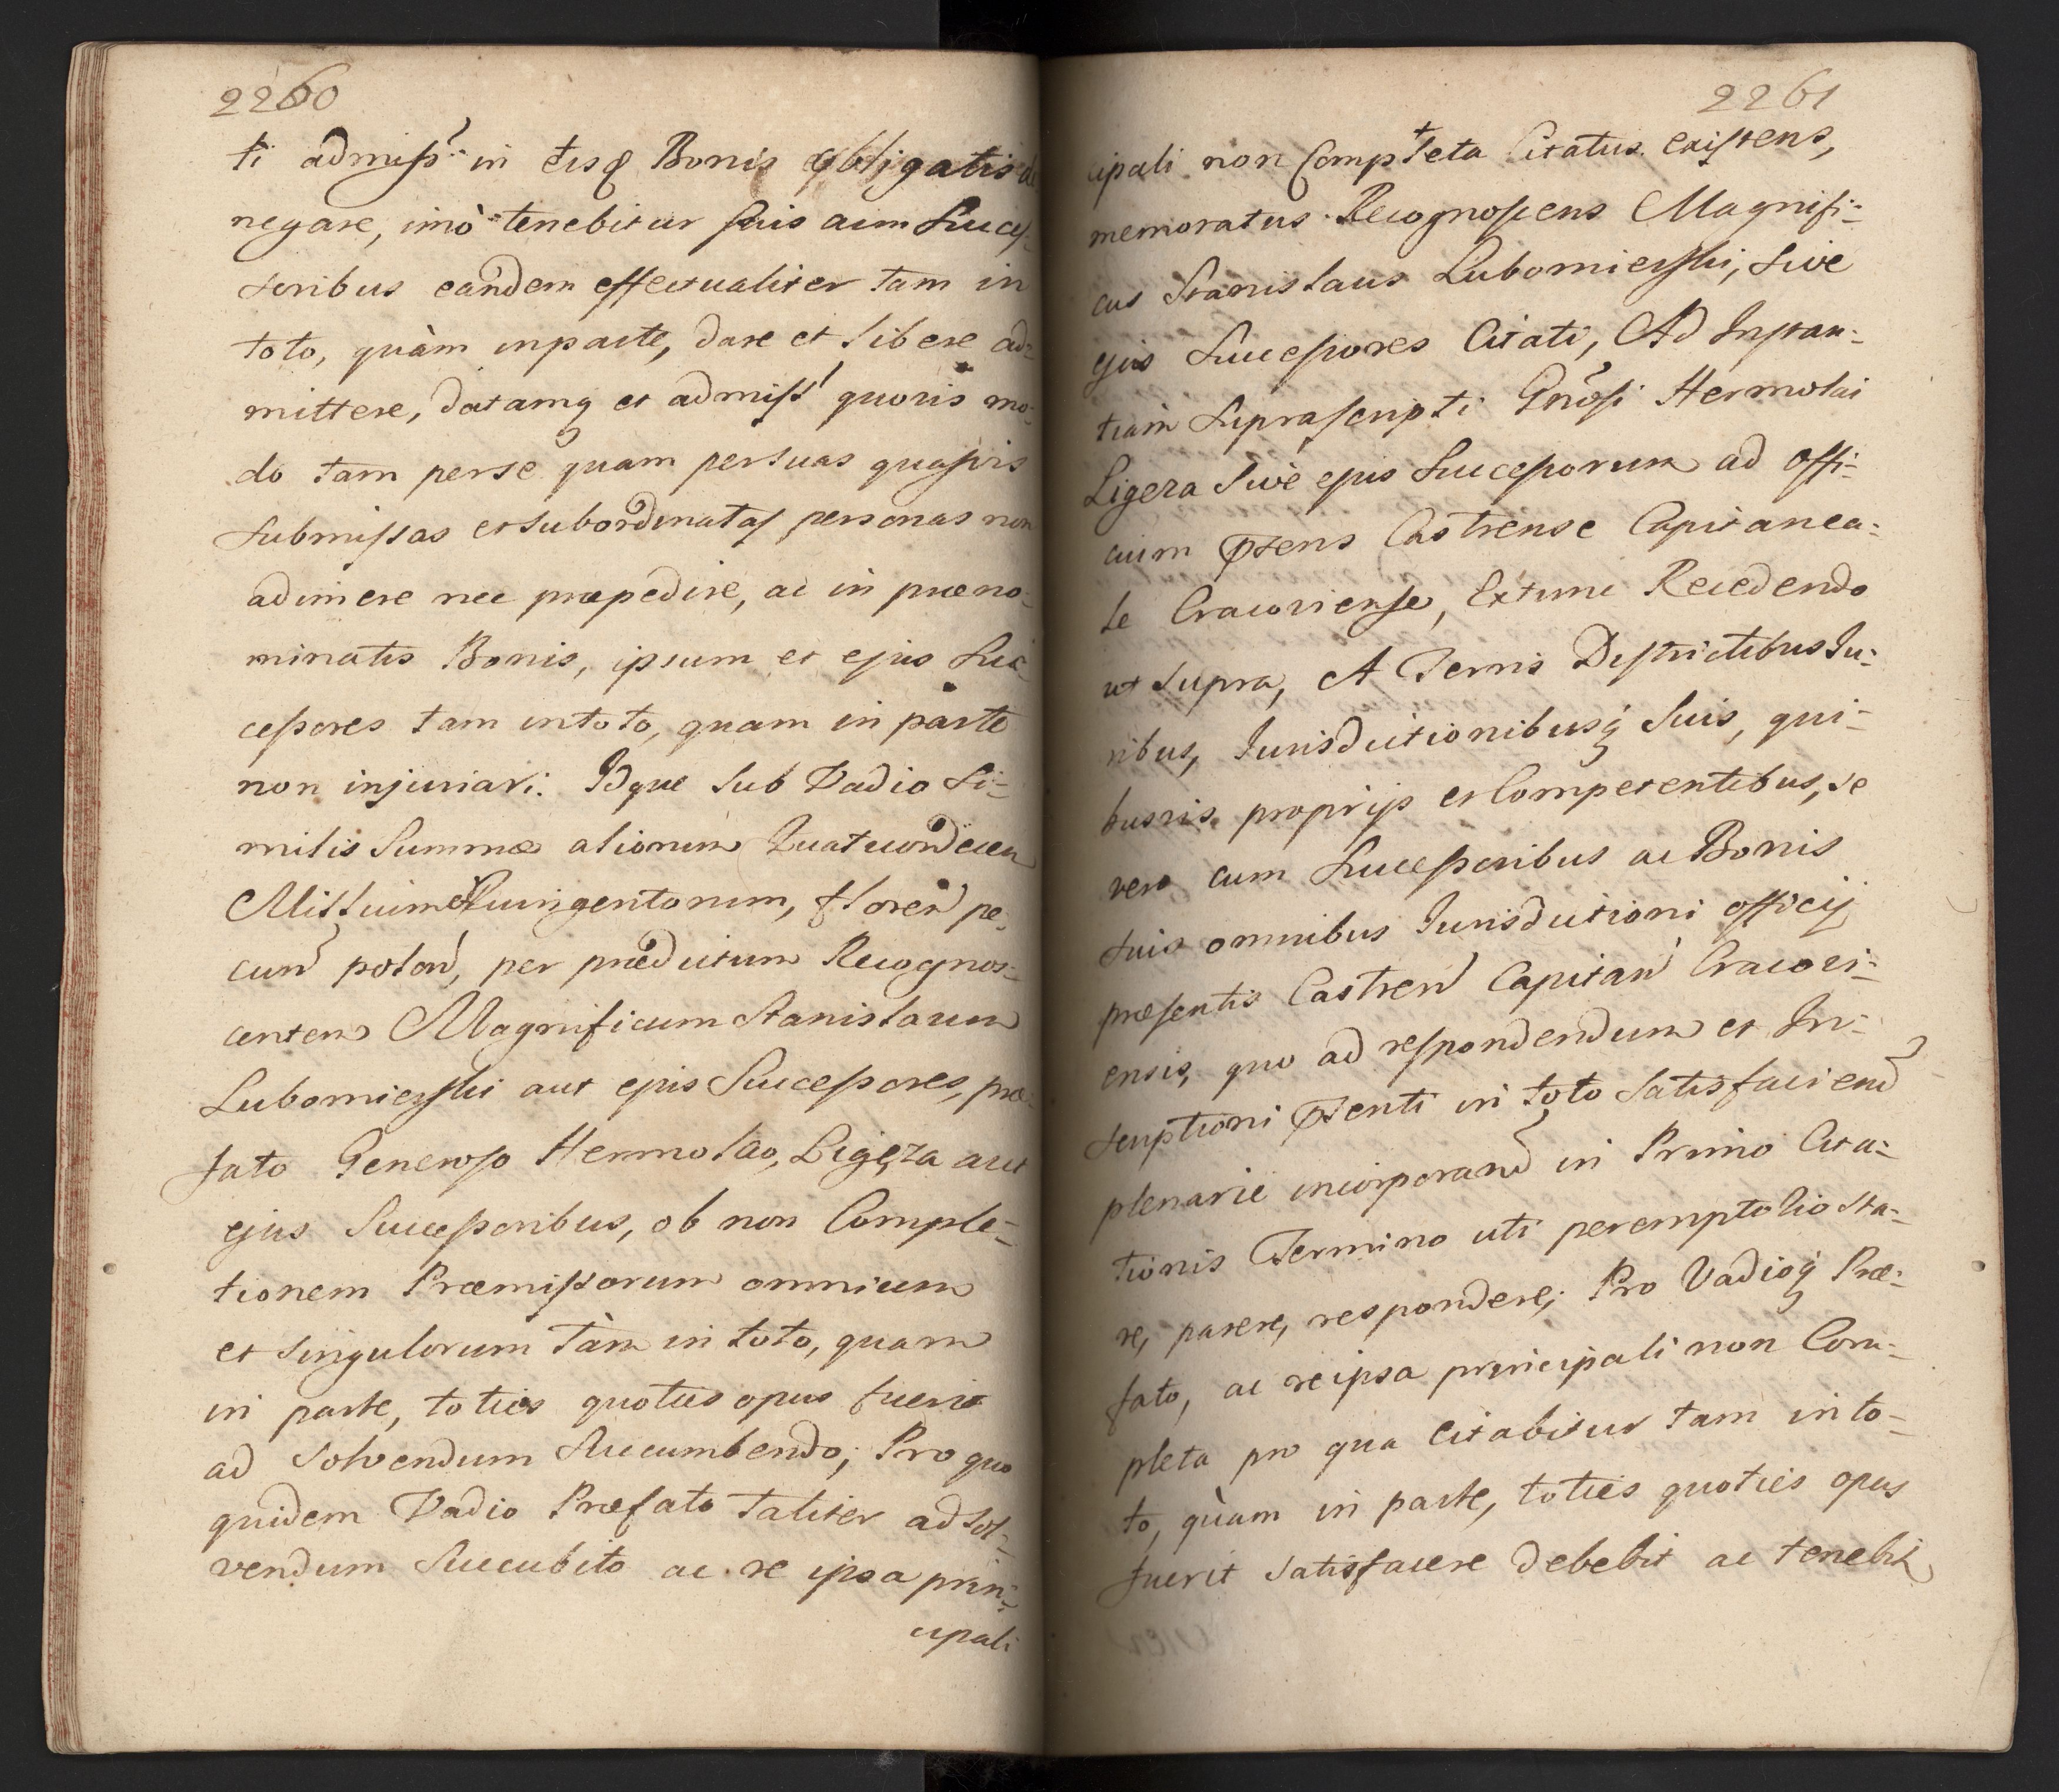 2260
ti admiss: in eisq Bonis obligatis de
negare, imò tenebitur suis cum Succes-
soribus eandem effectualiter tam in
toto, quàm in parte, dare et libere ad-
mittere, datamq et admiss quovis mo-
do tam per se quam per suas quasvis
submissas et subordinatas personas non
adimere nec præpedire, ac in præno-
minatis Bonis, ipsum et ejus Suc-
cessores tam in toto, quam in parte
non injuriari: Idque sub Vadio si-
milis Summæ aliorum Quatuordecem
Millium et Quingentorum, floren pe-
cun polon, per prædictum Recognos-
centem Magnificum Stanislaum
Lubomierski aut ejus Successores, præ-
fato Generoso Hermolao, Ligęza aut
ejus Successoribus, ob non Comple-
tionem Præmissorum omnium
et singulorum Tàm in toto, quam
in parte, toties quoties opus fuerit
ad solvendum Succumbendo; Pro quo
quidem Vadio Præfato Taliter ad sol-
vendum Succubito ac re ipsa prin-
cipali
2261
cipali non Completa Citatus existens,
memoratus Recognoscens Magnifi-
cus Stanislaus Lubomierski, sive
ejus Successores Citati, Ad Instan-
tiam Suprascripti Gnosi Hermolai
Ligeza sive ejus Successorum ad offi-
cium pñens Castrense Capitanea-
le Cracoviense, Extunc Recedendo
ut supra, A Terris Districtibus Ju-
ribus, Jurisdictionibusq suis, qui-
busvis proprijs et Competentibus, se
vero cum Successoribus ac Bonis
suis omnibus Jurisdictioni officij
præsentis Castren Capitan Cracovi-
ensis, quo ad respondendum et In-
scriptioni pñenti in toto satisfaciend
plenarie incorporand in Primo Cita-
tionis Termino uti peremptolio sta-
re, parere, respondere; Pro Vadioq Præ-
fato, ac re ipsa principali non Com-
pleta pro qua Citabitur tam in to-
to, quàm in parte, toties quoties opus
fuerit satisfacere debebit ac tenebit